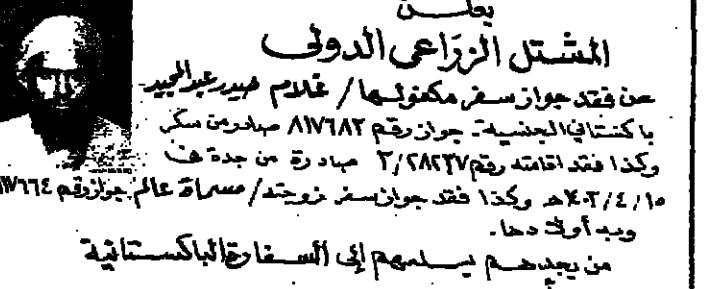 يعلن
المشتل الزراعى الدولى
عن فقد جواز سفر مكفولها / غلام حيدر عبد المجيد
باكستانى الجنسية جواز رقم ٨١٧٦٨٢ صادر من سكر
وكذا فقد اقامته رقم ٢/٢٨٢٣٧ صادرة من جدة فى
١٤٠٢/٤/١٥هـ وكذا فقد جواز سفر زوجته / مسماة عالم جواز رقم
وبه أولادها.
من يجدهم يسلمهم إلى السفارة الباكستانية